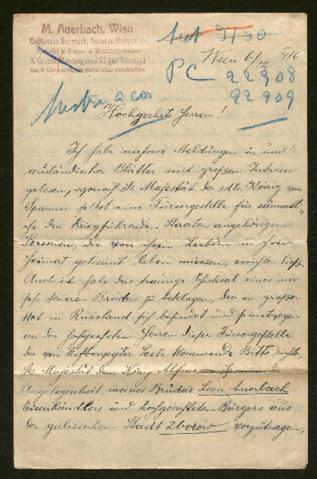 M. Auerbach, Wien
Gablonzer
II. Grosse 22
9190
Wien 6/12 916
PC 22908
22909
Hochgeehrte Herren!
Ich habe mehrere Meldungen in und
ausländischer Blätter mit großem Interesse
gelesen, wonach Se Majestät der edle König von
Spanien selbst eine Fürsorgestelle für sämmtli-
che den Kriegführenden Staaten angehörigen
Personen, die von ihren Lieben in ihrer
Heimat getrennt leben müssen, errichten ließ.
Auch ich habe das traurige Schicksal eines mir
sehr teueren Bruders zu beklagen, der in großer
Not in Russland sich befindet und
an die hochgeehrten Herren dieser Fürsorgestelle
die von Seele kommende Bitte richte,
Se Majestät dem König Alfons
Angelegenheit meines Bruders Leon Auerbach
Eisenhändlers und hochgeachteten Bürgers aus
der galizischen Stadt Zborow vorzutragen,